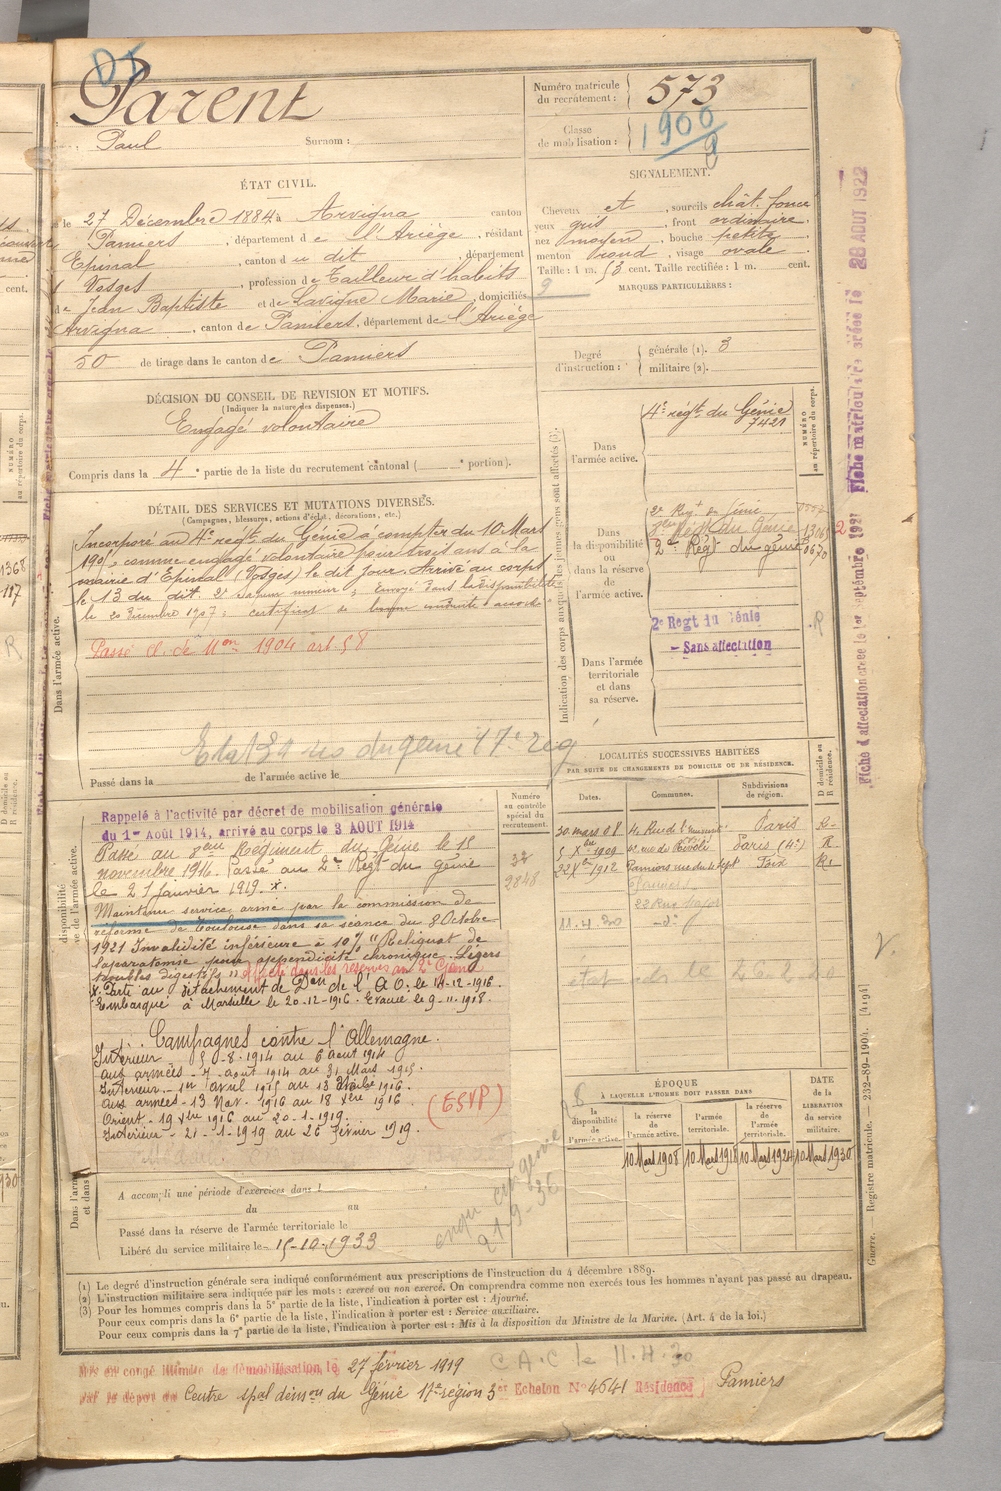 DI
Parent
Paul Surnom :
Numéro matricule du recrutement : 573
Classe de mobilisation : 1900
9
ÉTAT CIVIL.
le 27 Décembre 1884 à Arvigna canton
Pamiers, département de l'Ariège, résidant
Epinal, canton du dit, département
Vosges, profession de Tailleur d'habits
de Jean Baptiste et de Lavigne Marie, domiciliés
Arvigna, canton de Pamiers, département de l'Ariège
50 de tirage dans le canton de Pamiers
SIGNALEMENT.
Cheveux et, sourcils chât. foncé
yeux gris, front ordinaire
nez moyen, bouche petite
menton rond, visage ovale
Taille : 1 m. 53 cent. Taille rectifiée : 1 m. cent.
9
MARQUES PARTICULIÈRES :
Degré d'instruction : générale (1). 3
militaire (2).
DÉCISION DU CONSEIL DE REVISION ET MOTIFS.
(Indiquer la nature des dispenses.)
Engagé volontaire
Compris dans la 4e partie de la liste du recrutement cantonal ( e portion).
DÉTAIL DES SERVICES ET MUTATIONS DIVERSES.
(Campagnes, blessures, actions d'éclat, décorations, etc.)
Dans l'armée active.
Incorporé au 4e régt du Génie à compter du 10 Mars
190, comme engagé volontaire pour trois ans à la
mairie d'Epinal (Vosges) le dit jour. Arrivé au corps
le 13 du dit. 2e sapeur mineur ; Envoyé dans la disponibilité
le 20 Décembre 1907 ; certificat de bonne conduite accordé
Passé
1904 art 58
du génie 17e reg
Passé dans la de l'armée active le
Indication des corps auxquels les jeunes gens sont affectés (3).
NUMÉRO au répertoire du corps.
Dans l'armée active.
4e régt du Génie
7421
Dans la disponibilité ou dans la réserve de l'armée active.
2e Régt du Génie
Régt du Génie
2e Régt du génie
Dans l'armée territoriale et dans sa réserve.
2e Regt du Génie
- Sans affectation
R
LOCALITÉS SUCCESSIVES HABITÉES
PAR SUITE DE CHANGEMENTS DE DOMICILE OU DE RÉSIDENCE.
Dates. Communes. Subdivisions de région. D domicile ou R résidence.
30 mars 08 Paris R
5 Xbre 1909 Paris (4e) R
22 Xbre 1912 Pamiers rue du 4 sept Foix R
Pamiers
11.4.30 -do-
Numéro au contrôle spécial du recrutement.
32
2848
Rappelé à l'activité par décret de mobilisation générale
du 1er Août 1914, arrivé au corps le 3 AOUT 1914
Passé au 8eme Régiment du Génie le 15
novembre 1916. Passé au 2e Régt du génie
le 21 janvier 1919. x.
Maintenu service armé par la commission de
réforme de Toulouse dans sa séance du 8 Octobre
1921 Invalidité inférieure à 10% "Reliquat de
laparatomie pour appendicite chronique. Légers
troubles digestifs" affecté dans les réserves au 2e Génie
x. Parti au détachement de Don de l'A.O. le 14-12-1916.
Embarqué à Marseille le 20-12-1916. Evacué le 9-11-1918.
Campagnes contre l'Allemagne.
Intérieur 5-8-1914 au 6 août 1914
aux armées - 7 août 1914 au 31 Mars 1915.
Intérieur - 1er avril 1915 au 1916.
aux armées - 13 Nov. 1916 au 18 Xbre 1916.
Orient - 19 Xbre 1916 au 20-1-1919.
Intérieur - 21-1-1919 au 26 février 1919.
(ESVP)
ÉPOQUE
À LAQUELLE L'HOMME DOIT PASSER DANS
la disponibilité de l'armée active. la réserve de l'armée active. l'armée territoriale. la réserve de l'armée territoriale.
DATE de la LIBÉRATION du service militaire.
10 Mars 1908 10 Mars 1918 10 Mars 1924 10 Mars 1930
A accompli une période d'exercices dans l
du au
Passé dans la réserve de l'armée territoriale le
Libéré du service militaire le 15-10-1933
(1) Le degré d'instruction générale sera indiqué conformément aux prescriptions de l'instruction du 4 décembre 1889.
(2) L'instruction militaire sera indiquée par les mots : exercé ou non exercé. On comprendra comme non exercés tous les hommes n'ayant pas passé au drapeau.
(3) Pour les hommes compris dans la 5e partie de la liste, l'indication à porter est : Ajourné.
Pour ceux compris dans la 6e partie de la liste, l'indication à porter est : Service auxiliaire.
Pour ceux compris dans la 7e partie de la liste, l'indication à porter est : Mis à la disposition du Ministre de la Marine. (Art. 4 de la loi.)
Mis en congé illimité de démobilisation le 27 février 1919 C.A.C le 11.4.30
par le dépôt du Centre spal démon du Génie 17e région 3er Echelon No 4641 Résidence Pamiers
Fiche matriculaire créée le 28 AOUT 1922
Fiche d'affectation créée le 1er septembre 1921
Guerre. — Registre matricule. — 232-89-1904. [4194]